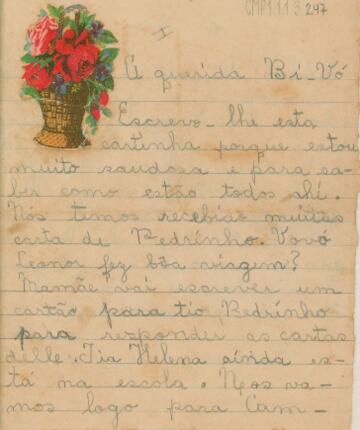 CMP1.1.3.247
I
Á querida Bi-Vó
Escrevo-lhe esta
cartinha porque estou
muito saudosa e para sa-
ber como estão todos ahi.
Nós temos recebido muitas
carta de Pedrinho. Vovó
Leonor fez bôa viagem?
Mamãe vai escrever um
cartão para tio Pedrinho
para responder as cartas
delle. Tia Helena ainda es-
tá na escola. Nos va-
mos logo para Cam-